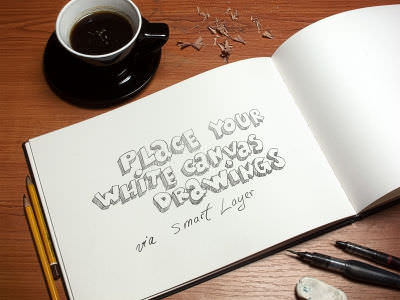 PLaCE YOUR
WHiTE CaNVaS
DRaWiNGS
via Smart Layer